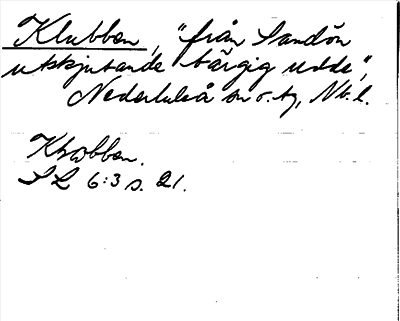 Klubben, "från Sandön
utskjutande bärgig udde",
Nederluleå sn o. tg, Nb. l.
Klwbben.
SL 6:3 s. 21.